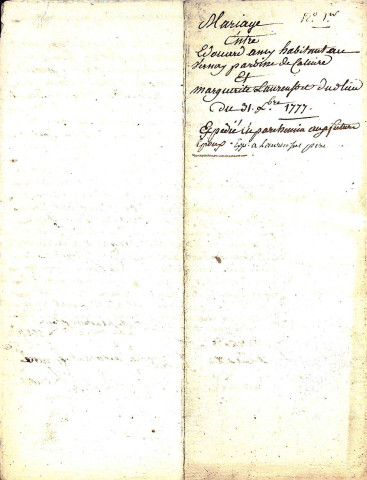 Mariage N.° 1.er
Entre
Edouard amy habitant au
Vernay paroisse de Caluire
Et
marguerite Laurenson dudlieu
du 31. Xbre 1777.
Expédié en parchemin aux futurs
Epoux - Exp. a Laurenson pere